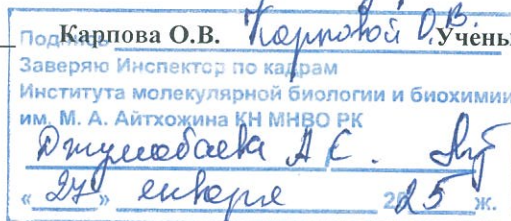 Подпись Карпова О.В. Карповой О.В. Учены
Заверяю Инспектор по кадрам
Института молекулярной биологии и биохимии
им. М. А. Айтхожина КН МНВО РК
Джумабаева А Е.
«27» января 2025 ж.